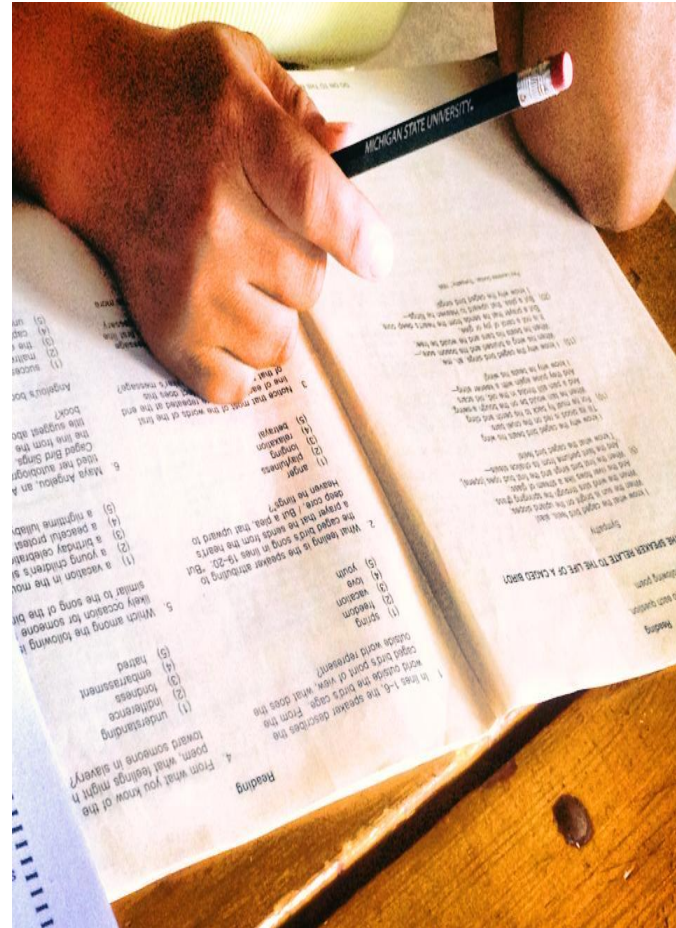 MICHIGAN STATE UNIVERSITY.
Reading
to each question
ollowing poem.
HE SPEAKER RELATE TO THE LIFE OF A CAGED BIRD?
Sympathy
I know what the caged bird feels, alas!
When the sun is bright on the upland slopes;
When the wind stirs soft through the springing grass
And the river flows like a stream of glass;
When the first bird sings and the first bud opes,
And the faint perfume from its chalice steals—
(5)
I know what the caged bird feels!
I know why the caged bird beats his wing
Till its blood is red on the cruel bars;
For he must fly back to his perch and cling
When he fain would be on the bough a-swing;
(10)
And a pain still throbs in the old, old scars
And they pulse again with a keener sting—
I know why he beats his wing!
I know why the caged bird sings, ah me,
When his wing is bruised and his bosom sore,—
(15)
When he beats his bars and would be free;
It is not a carol of joy or glee,
But a prayer that he sends from his heart's deep core,
But a plea, that upward to Heaven he flings—
(20)
I know why the caged bird sings!
Reading
1 In lines 1–6, the speaker describes the
world outside the bird's cage. From the
caged bird's point of view, what does the
outside world represent?
(1) spring
(2) freedom
(3) vacation
(4) love
(5) youth
2. What feeling is the speaker attributing to
the caged bird's song in lines 19–20: "But
a prayer that he sends from his heart's
deep core, / But a plea, that upward to
Heaven he flings"?
(1) anger
(2) playfulness
(3) longing
(4) relaxation
(5) betrayal
3 Notice that most of the words of the first
line of ea repeated at the end
of that does this
er's message?
message
first line
essary
more
4. From what you know of the
poem, what feelings might h
toward someone in slavery?
(1) understanding
(2) indifference
(3) fondness
(4) embarrassment
(5) hatred
5. Which among the following i
likely occasion for someone
similar to the song of the bir
(1) a vacation in the mou
(2) a young children's s
(3) a birthday celebration
(4) a peaceful protest
(5) a nighttime lullab
6. Maya Angelou, an A
titled her autobiogra
Caged Bird Sings.
the line from the
title suggest abo
book?
Angelou's boo
(1) succes
(2) maltre
(3) the v
(4) cap
(5) un